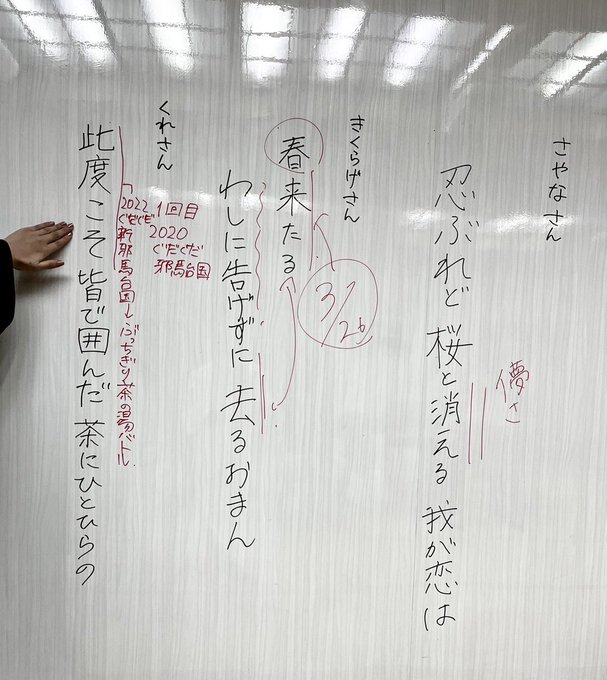 さやなさん
忍ぶれど 桜と消える 我が恋は
儚さ
きくらげさん
春来たる
わしに告げずに 去るおまん
3/26
くれさん
此度こそ 皆で囲んだ 茶にひとひらの
1回目
2020
ぐだぐだ
邪馬台国
2022
ぐだぐだ
新邪馬台国↓ぶっちぎり茶の湯バトル